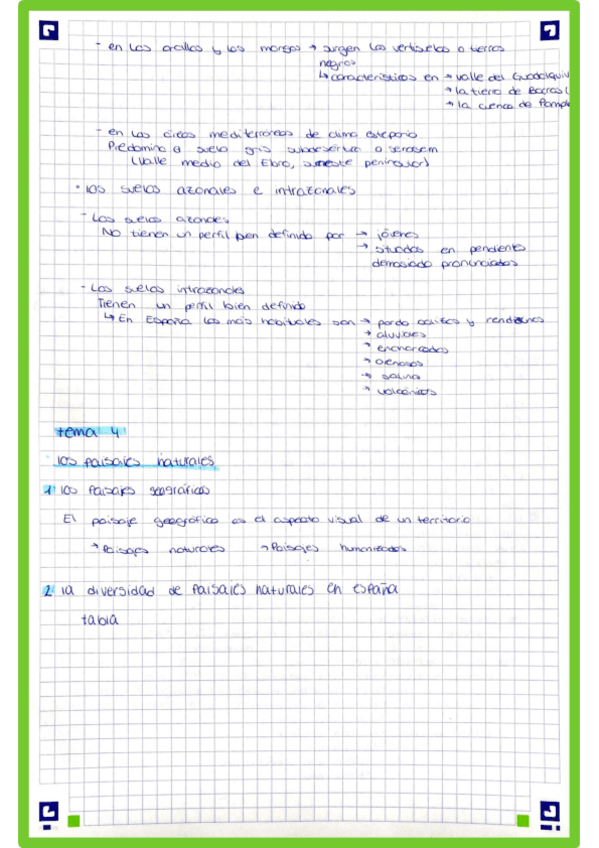 - en las arcillas y las margas → surgen los vertisuelos o tierras
negras
↳ característicos en → valle del Guadalquiv
→ la tierra de Barros (
→ la cuenca de Pampl
- en las áreas mediterráneas de clima estepario
Predomina el suelo gris subdesértico o serosem
(Valle medio del Ebro, sureste peninsular)
• los suelos azonales e intrazonales
- Los suelos azonales
NO tienen un perfil bien definido por → jóvenes
→ situados en pendiente
demasiado pronunciados
- Los suelos intrazonales
Tienen un perfil bien definido
↳ En España los más habituales son → pardo calizos y rendzinas
→ aluviales
→ encharcados
→ arenosos
→ salino
→ volcánicos
tema 4
los paisajes naturales
1 los paisajes geográficos
El paisaje geográfico es el aspecto visual de un territorio
→ Paisajes naturales → Paisajes humanizados
2 la diversidad de paisajes naturales en españa
tabla